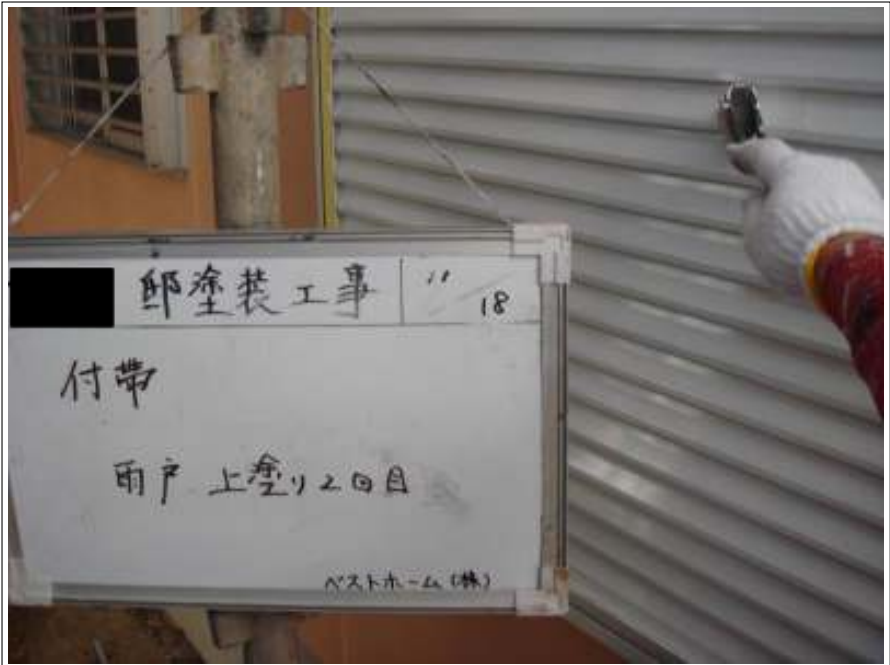 邸塗装工事 11/18
付帯
雨戸 上塗り2回目
ベストホーム(株)